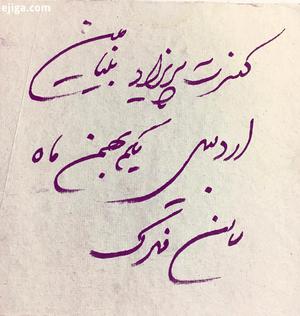 ejiga.com
کنسرت پریزاد بنیامین
اردبیل یکم بهمن ماه
سالن فدک